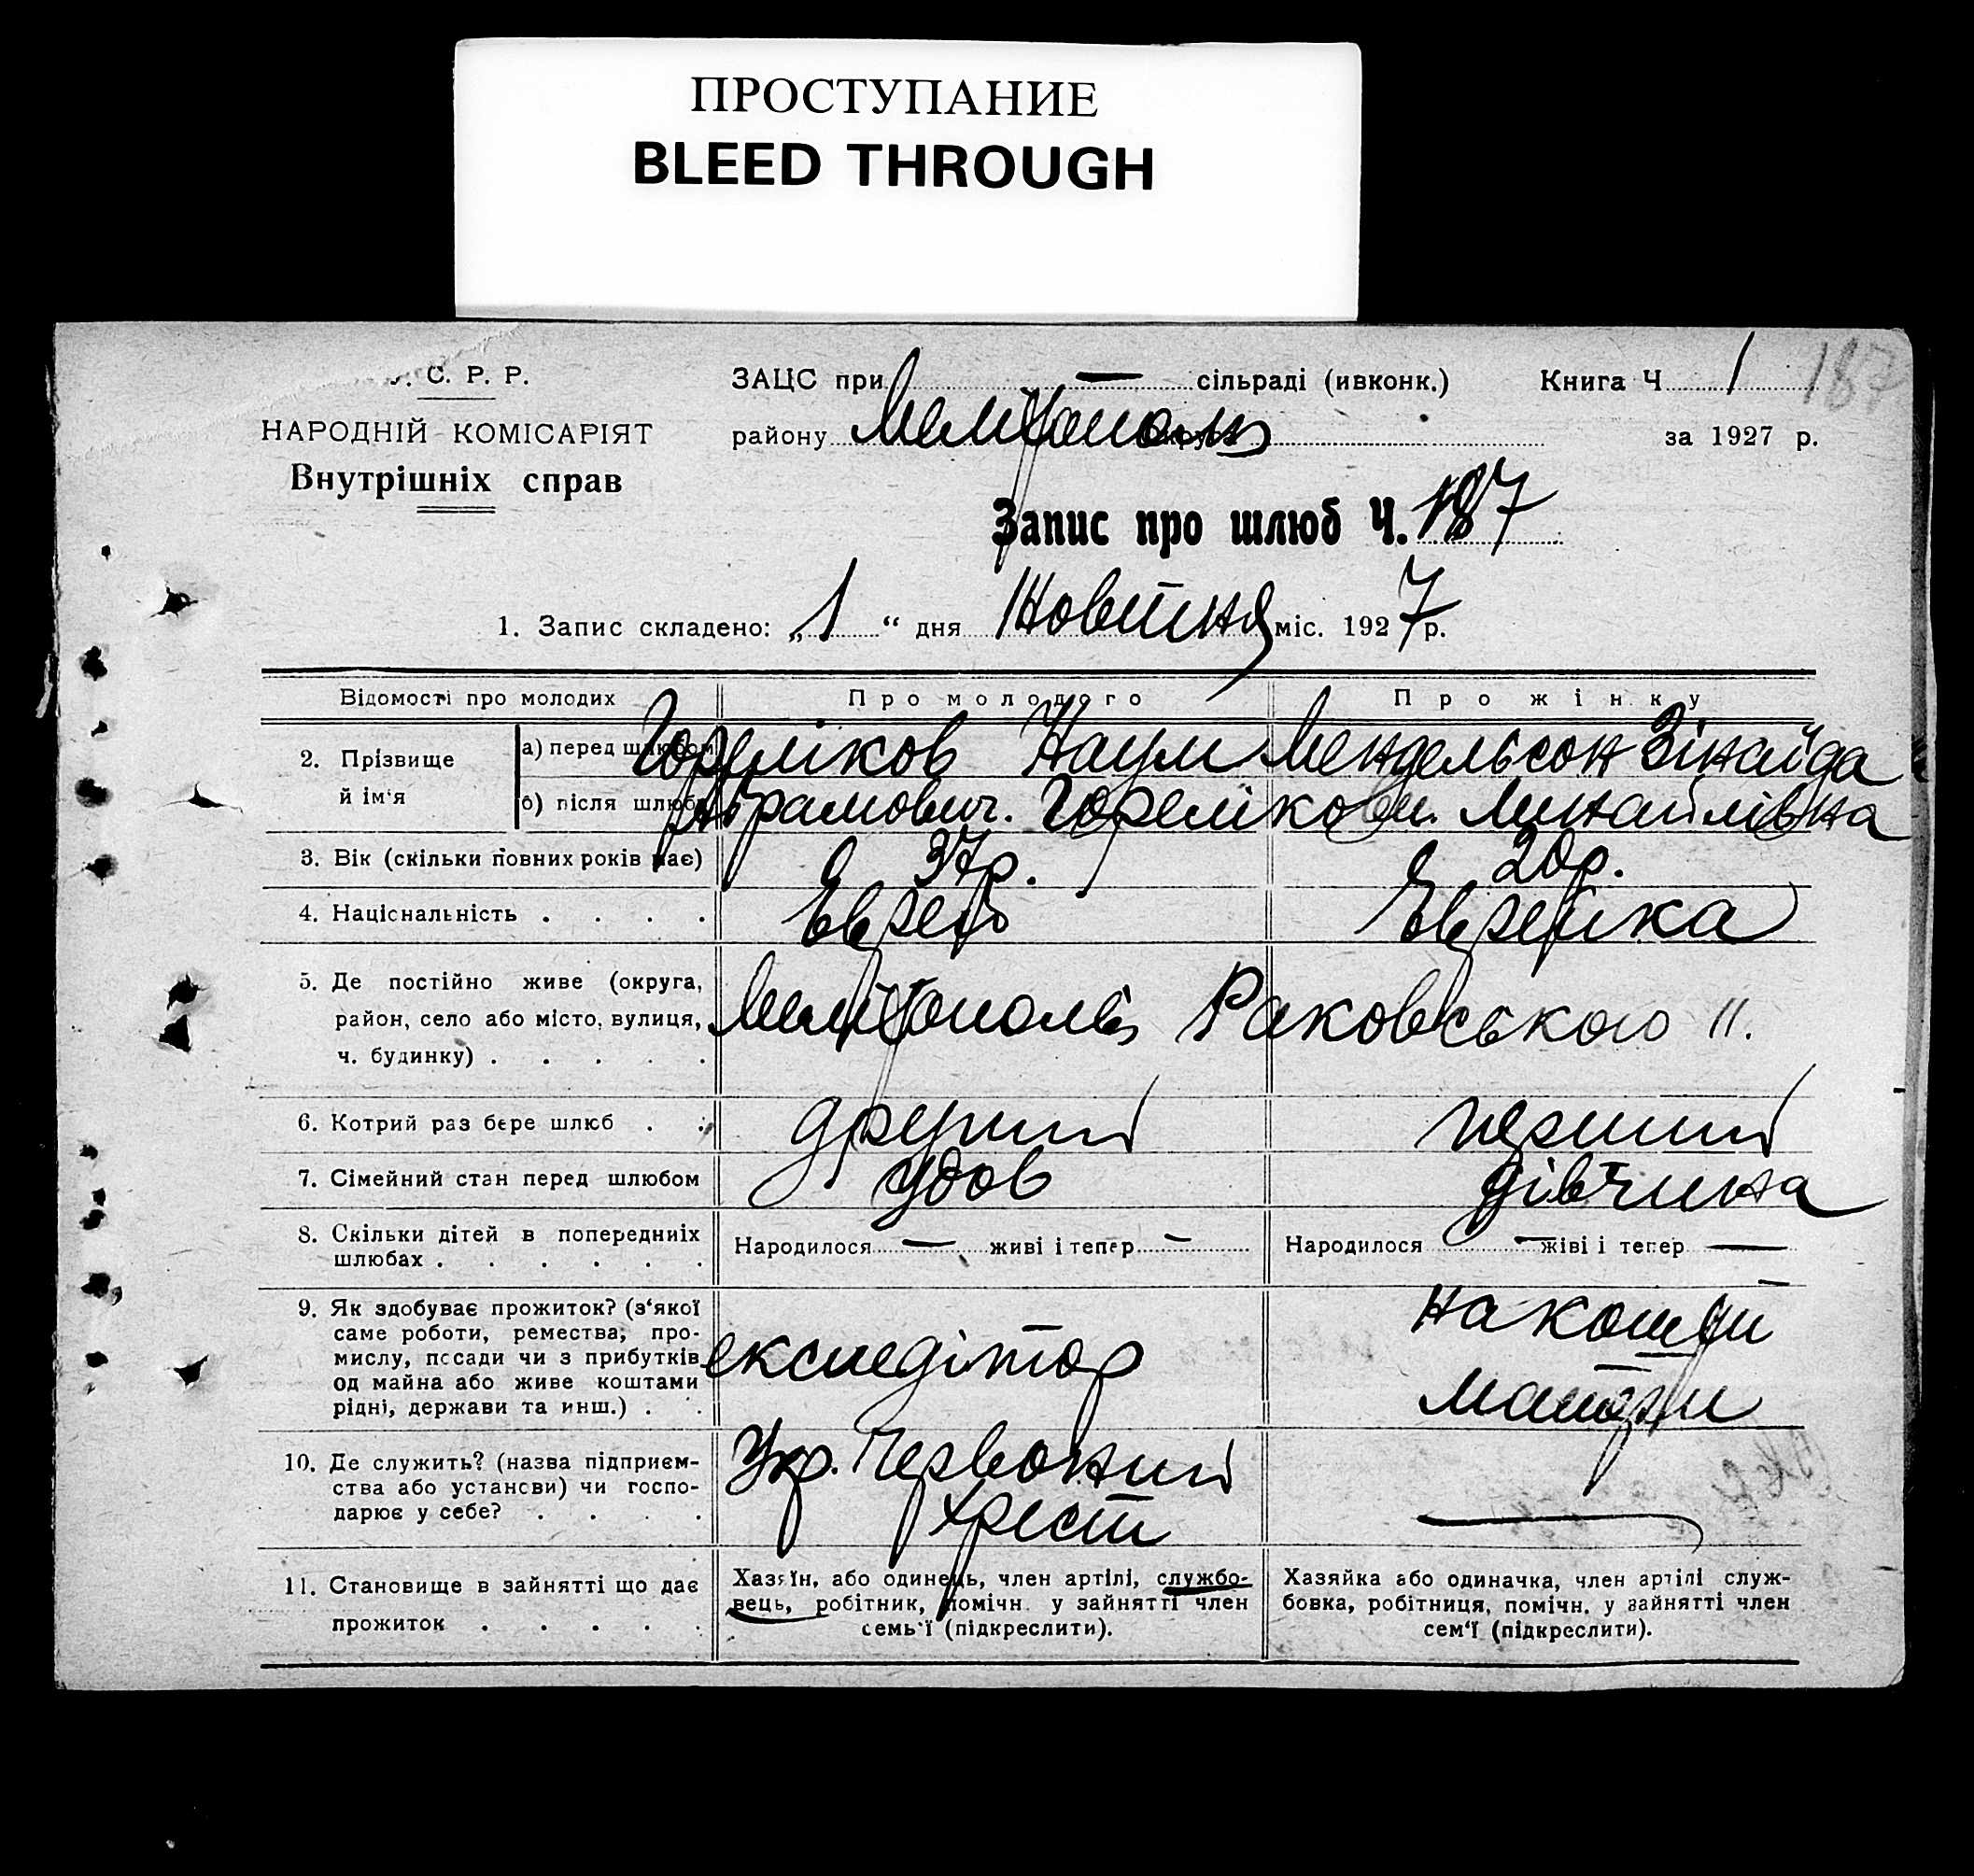 ПРОСТУПАНИЕ
BLEED THROUGH
С. Р. Р.
НАРОДНІЙ КОМІСАРІЯТ
Внутрішніх справ
ЗАЦС при — сільраді (ивконк.) Книга Ч 1 187
району Мелітополь за 1927 р.
Запис про шлюб Ч. 187
1. Запис складено: „1“ дня Жовтня міс. 1927 р.
Відомості про молодих Про молодого Про жінку
2. Прізвище й ім‘я
а) перед шлюбом Гореліков Наум Мендельсон Зінаїда
б) після шлюбу Абрамович. Горелікови. Михайлівна
3. Вік (скільки повних років має) 37р. 20р.
4. Національність . . . . Еврей Еврейка
5. Де постійно живе (округа,
район, село або місто, вулиця,
ч. будинку) . . . . .
Мелітополь Раковського 11.
6. Котрий раз бере шлюб . . другий перший
7. Сімейний стан перед шлюбом удов дівчина
8. Скільки дітей в попередниіх
шлюбах . . . . . .
Народилося — живі і тепер — Народилося — жіві і тепер —
9. Як здобуває прожиток? (з‘якої
саме роботи, ремества, про-
мислу, посади чи з прибутків
од майна або живе коштами
рідні, держави та инш.) . .
експедітор
на кошти
матери
10. Де служить? (назва підприєм-
ства або установи) чи госпо-
дарює у себе? . . . .
Укр. Червоний
Хрест
—
11. Становище в зайнятті що дає
прожиток . . . . .
Хазяїн, або одинець, член артілі, службо-
вець, робітник, помічн. у зайнятті член
семь‘ї (підкреслити).
Хазяйка або одиначка, член артілі служ-
бовка, робітниця, помічн. у зайнятті член
сем‘ї (підкреслити).